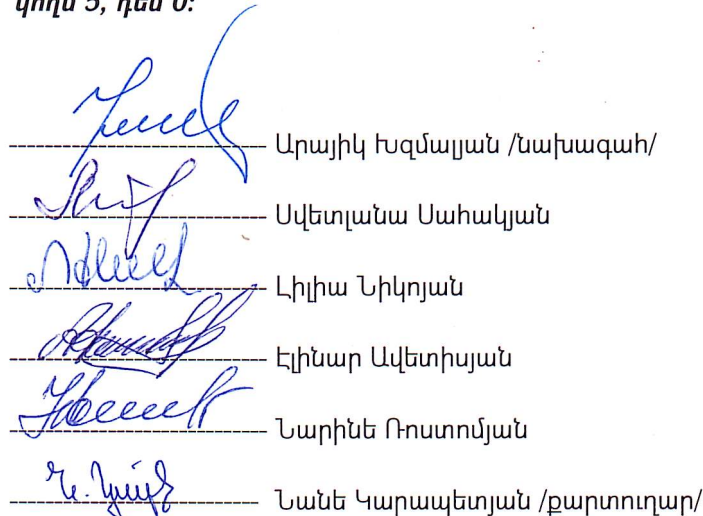 կողմ 5, դեմ 0:
Արայիկ Խզմալյան /նախագահ/
Սվետլանա Սահակյան
Լիլիա Նիկոյան
Էլինար Ավետիսյան
Նարինե Ռոստոմյան
Նանե Կարապետյան /քարտուղար/